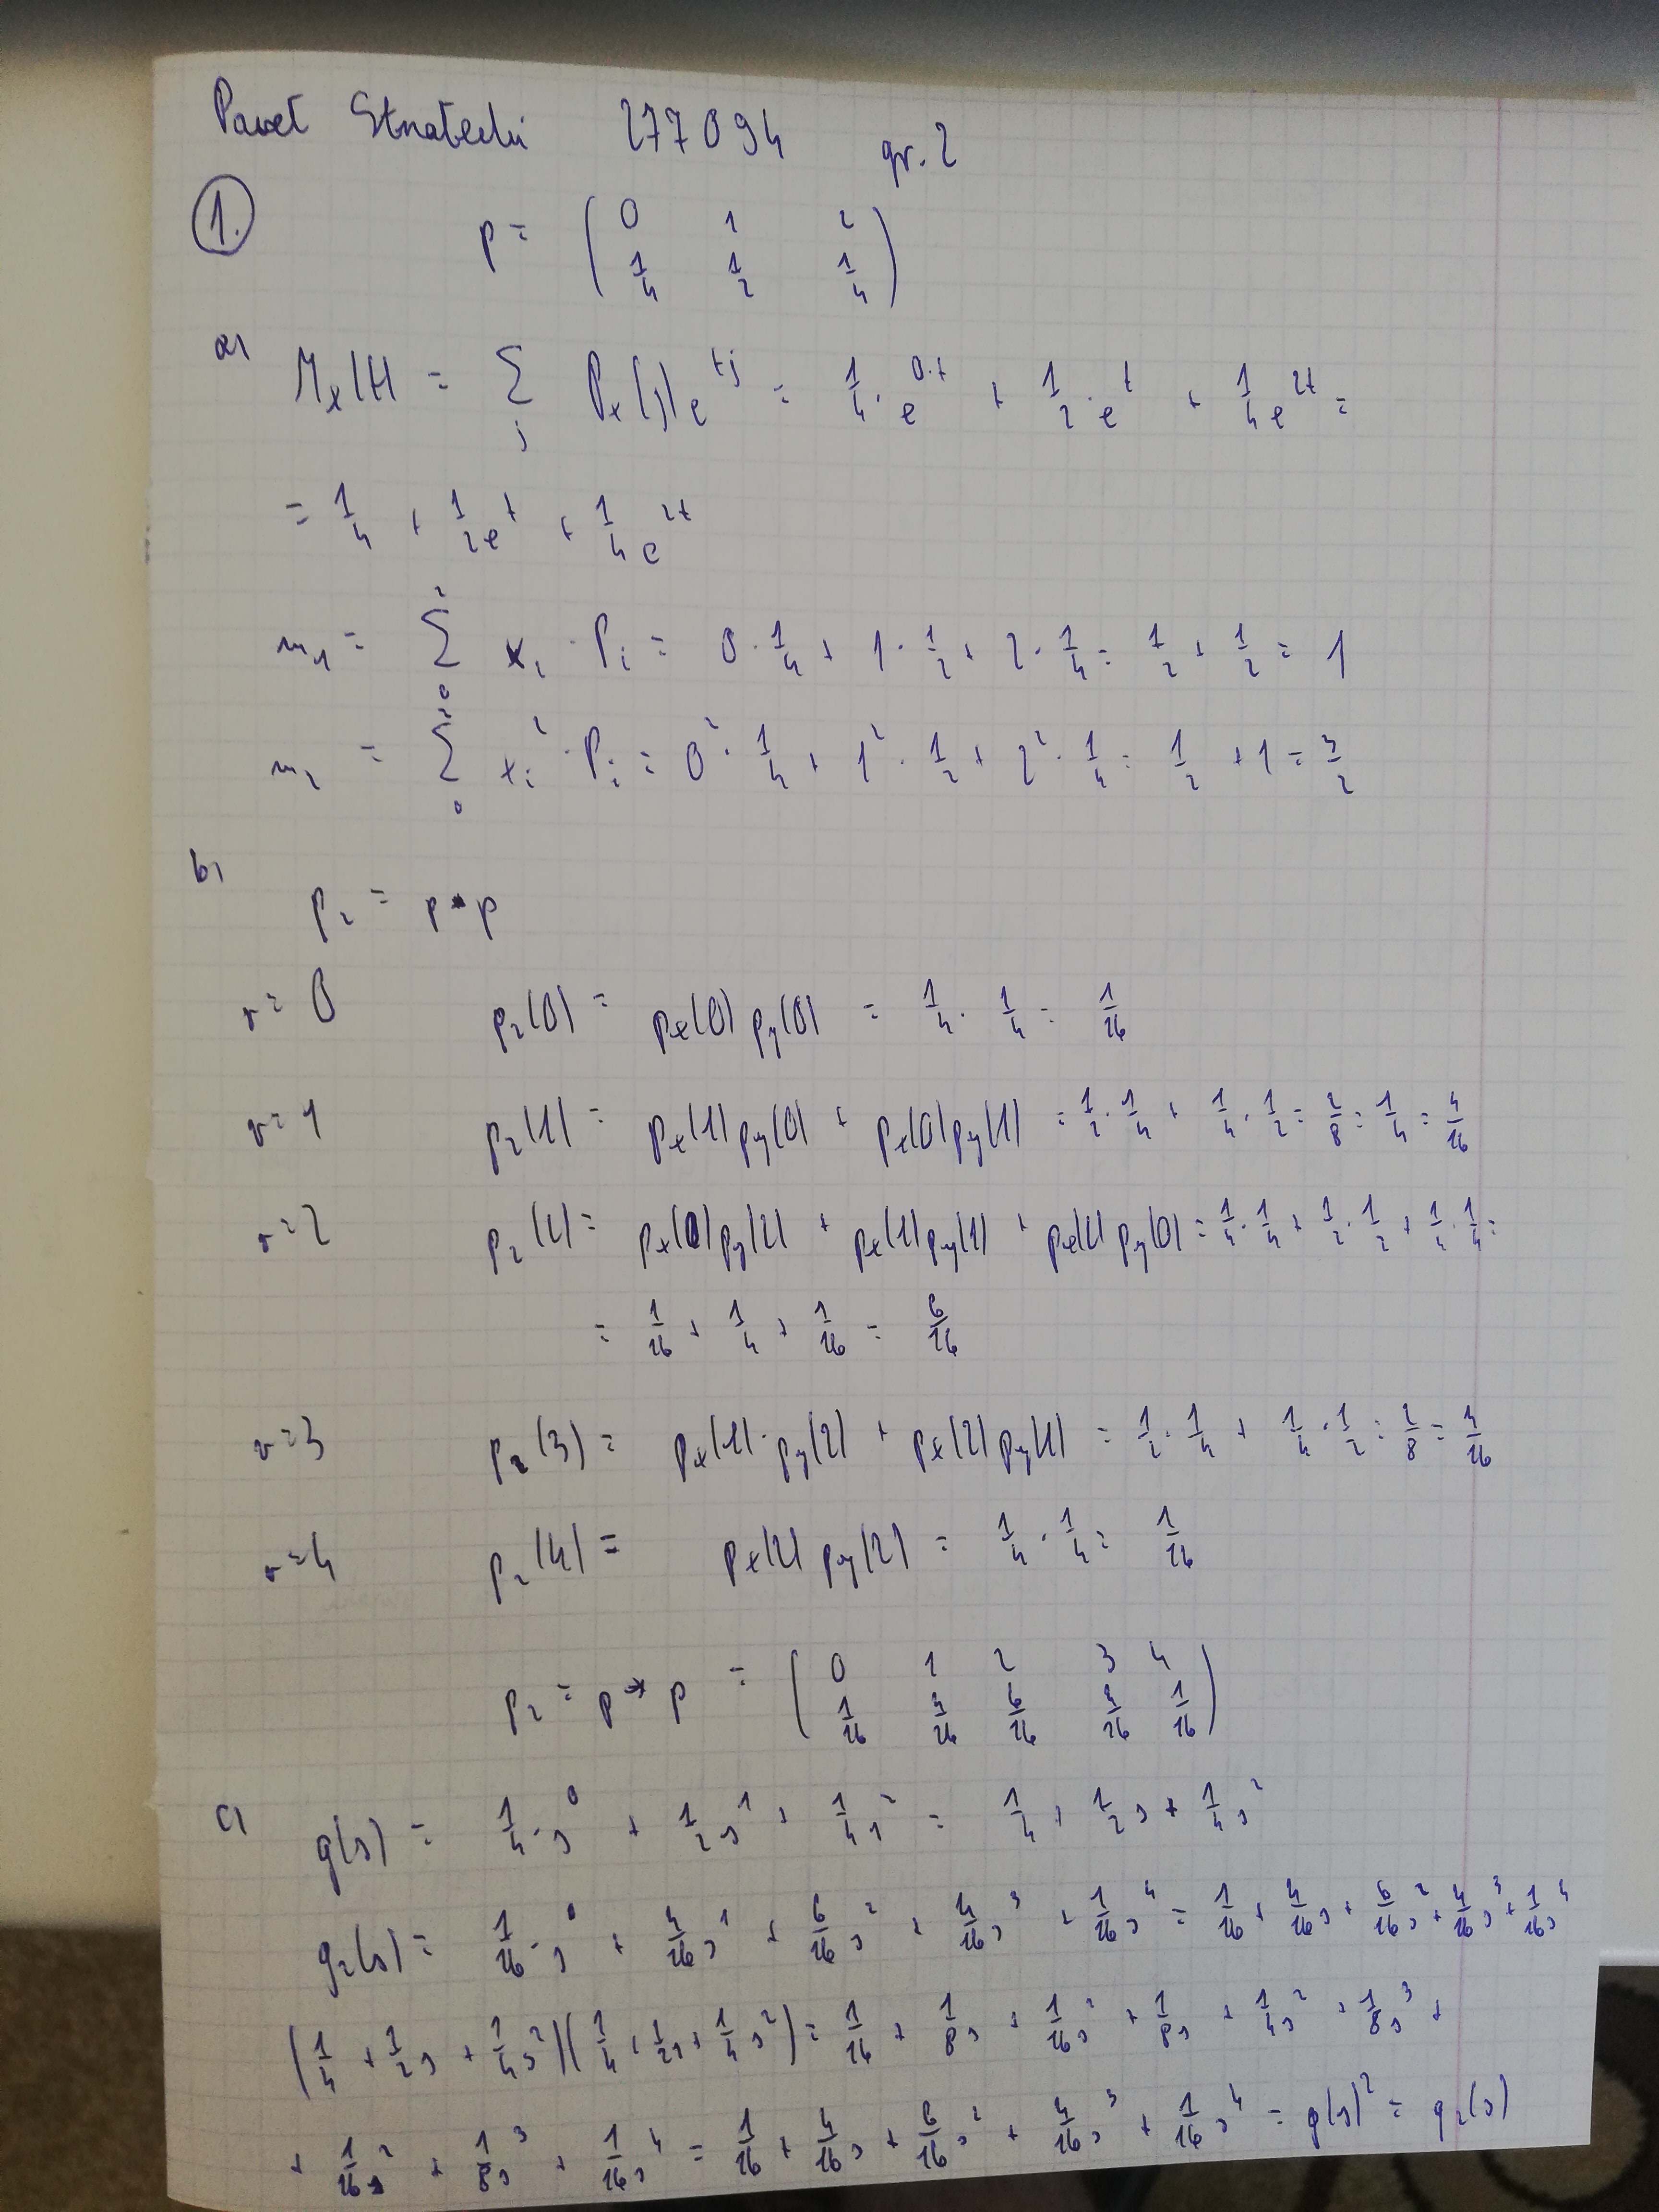 Paweł 277094 gr. 2
1.
p = ( 0 1 2
1/4 1/2 1/4 )
a) Mx(t) = Σ_j Px(j) e^tj = 1/4 · e^0·t + 1/2 · e^t + 1/4 e^2t =
= 1/4 + 1/2 e^t + 1/4 e^2t
m1 = Σ_0^2 xi · Pi = 0 · 1/4 + 1 · 1/2 + 2 · 1/4 = 1/2 + 1/2 = 1
m2 = Σ_0^2 xi^2 · Pi = 0^2 · 1/4 + 1^2 · 1/2 + 2^2 · 1/4 = 1/2 + 1 = 3/2
b)
p2 = p * p
r = 0 p2(0) = px(0) py(0) = 1/4 · 1/4 = 1/16
r = 1 p2(1) = px(1) py(0) + px(0) py(1) = 1/2 · 1/4 + 1/4 · 1/2 = 2/8 = 1/4 = 4/16
r = 2 p2(2) = px(0) py(2) + px(1) py(1) + px(2) py(0) = 1/4 · 1/4 + 1/2 · 1/2 + 1/4 · 1/4 =
= 1/16 + 1/4 + 1/16 = 6/16
r = 3 p2(3) = px(1) · py(2) + px(2) py(1) = 1/2 · 1/4 + 1/4 · 1/2 = 2/8 = 4/16
r = 4 p2(4) = px(2) py(2) = 1/4 · 1/4 = 1/16
p2 = p * p = ( 0 1 2 3 4
1/16 4/16 6/16 4/16 1/16 )
c) g(s) = 1/4 · s^0 + 1/2 s^1 + 1/4 s^2 = 1/4 + 1/2 s + 1/4 s^2
g2(s) = 1/16 · s^0 + 4/16 s^1 + 6/16 s^2 + 4/16 s^3 + 1/16 s^4 = 1/16 + 4/16 s + 6/16 s^2 + 4/16 s^3 + 1/16 s^4
(1/4 + 1/2 s + 1/4 s^2)(1/4 + 1/2 s + 1/4 s^2) = 1/16 + 1/8 s + 1/16 s^2 + 1/8 s + 1/4 s^2 + 1/8 s^3 +
+ 1/16 s^2 + 1/8 s^3 + 1/16 s^4 = 1/16 + 4/16 s + 6/16 s^2 + 4/16 s^3 + 1/16 s^4 = g(s)^2 = g2(s)